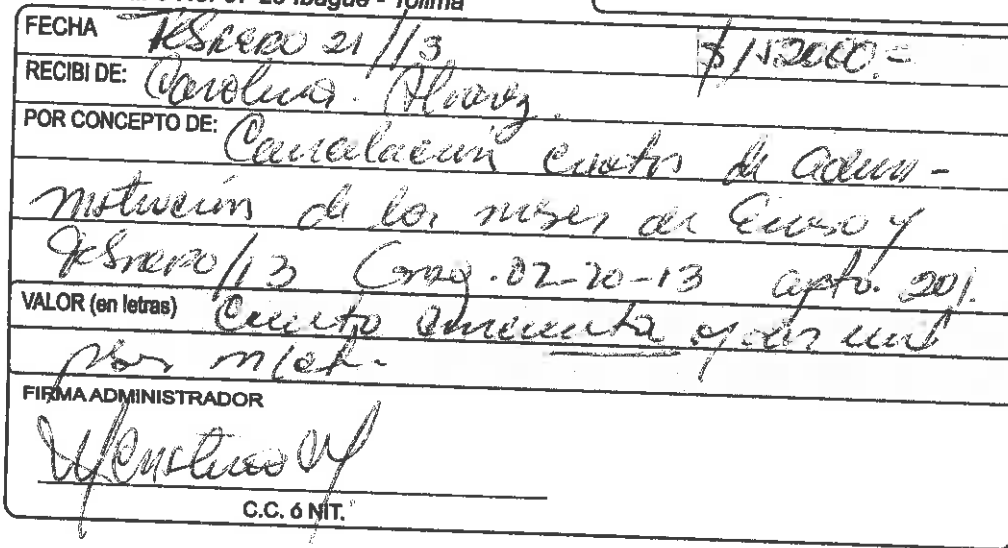 No. 37-26 Ibagué - Tolima
FECHA Febrero 21/13 $152000.=
RECIBI DE: Carolina. Alvarez.
POR CONCEPTO DE: Cancelación cuotas de admi-
nistración de los meses de Enero y
Febrero/13 Consg. 02-20-13 apto. 201.
VALOR (en letras) Ciento cincuenta y dos mil
pesos m/cte.
FIRMA ADMINISTRADOR
C.C. ó NIT.